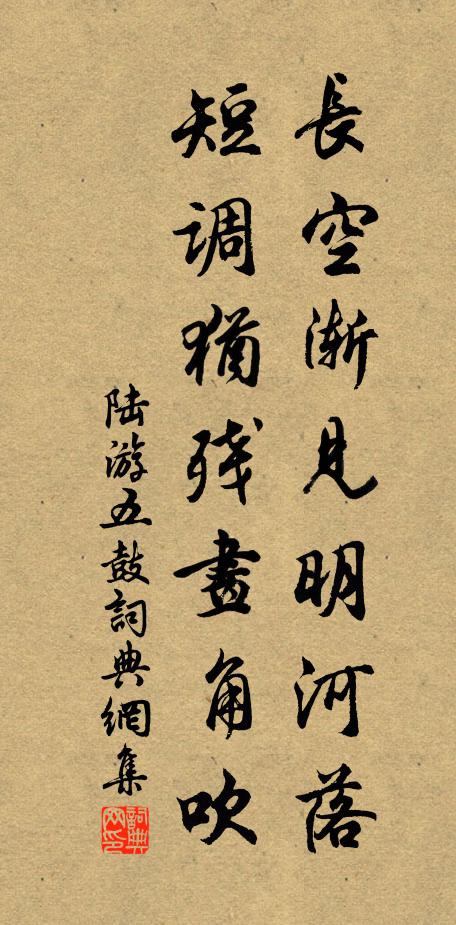 長空漸見明河落
短調猶殘畫角吹
陆游五鼓詞典網集
詞典网印